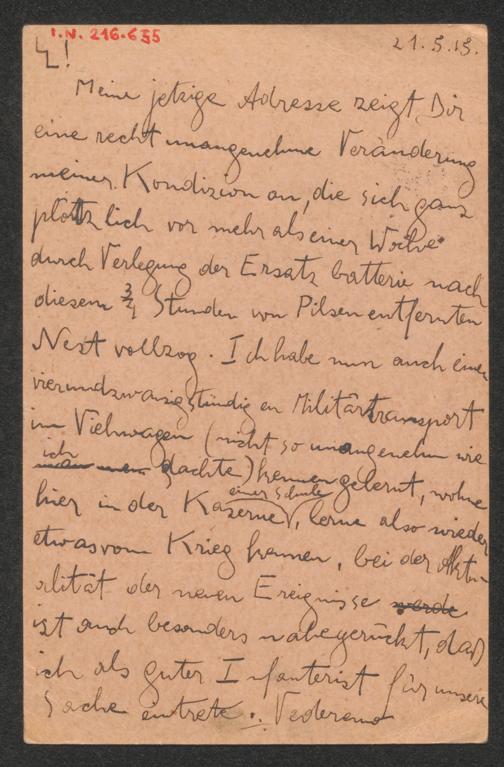 I.N. 216.635
21.5.15.
L!
Meine jetzige Adresse zeigt Dir
eine recht unangenehme Veränderung
meiner Kondizion an, die sich ganz
plötzlich vor mehr als einer Woche
durch Verlegung der Ersatzbatterie nach
diesem 3/4 Stunden von Pilsen entfernten
Nest vollzog. Ich habe nun auch einen
vierundzwanzigstündigen Militärtransport
im Viehwagen (nicht so unangenehm wie
ich dachte) kennen gelernt, wohne
hier in der Kaserne (einer Schule), lerne also wieder
etwas vom Krieg kennen, bei der Aktu-
alität der neuen Ereignisse
ist auch besonders nahegerückt, daß
ich als guter Infanterist für unsere
Sache eintrete. Vederemo